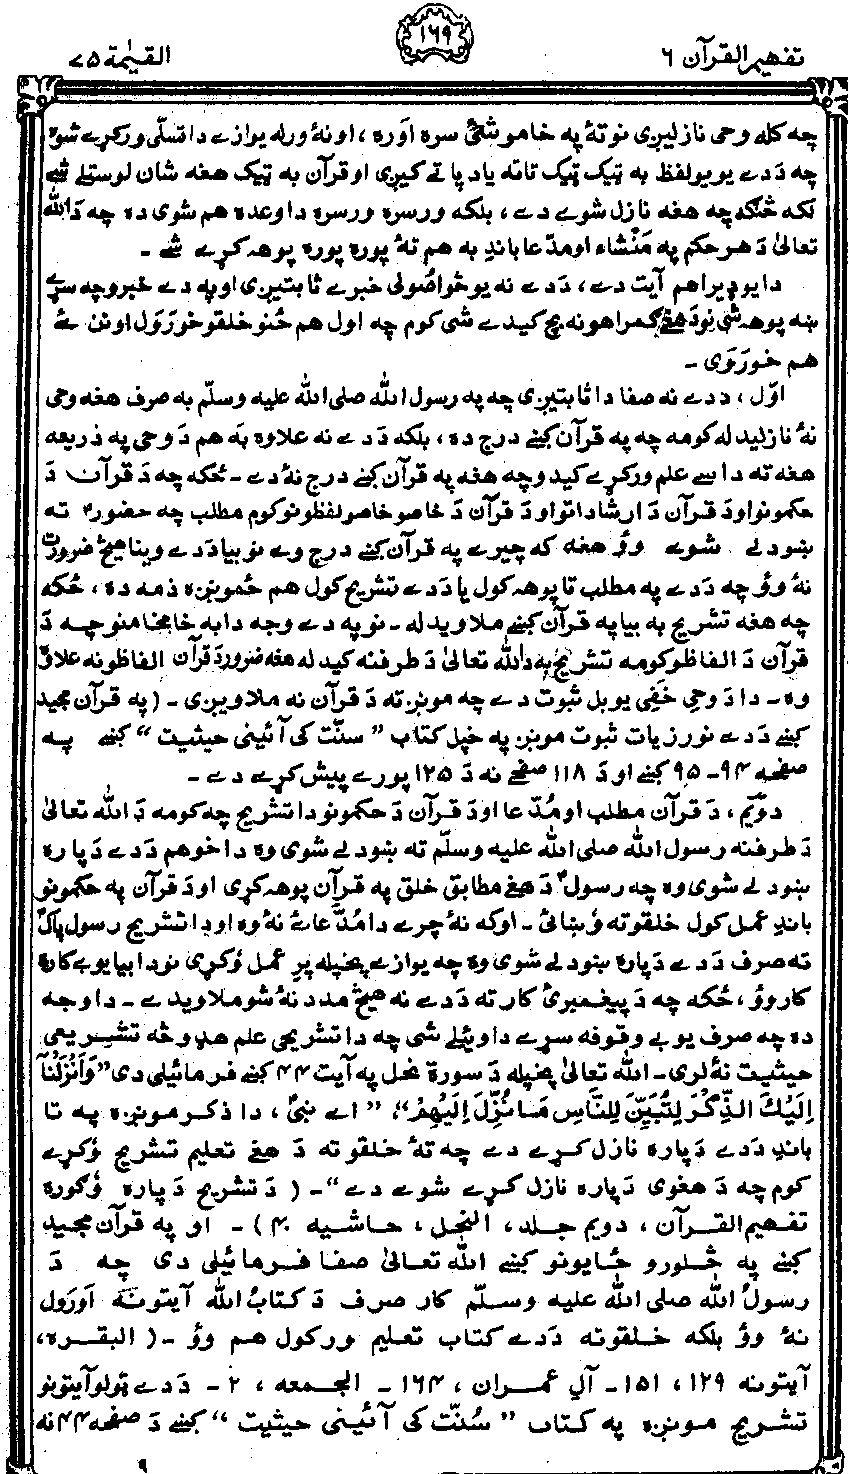 تفهيم القرآن ۶
۱۶۹
القیٰمة ۷۵
چه کله وحی نازلیږی نو تهٔ په خاموشئ سره اَوره، او نهٔ ورله یوازے دا تسلّی ورکړے شوه
چه دَ دے یو یو لفظ به ټیک ټیک تا ته یاد پاتے کیږی او قرآن به ټیک هغه شان لوستلے شے
لکه څنګه چه هغه نازل شوے دے، بلکه ورسره ورسره دا وعده هم شوی ده چه دَ الله
تعالیٰ دَ هر حکم په مَنْشاء او مدّعا باندِ به هم تهٔ پوره پوره پوهه کړے شے۔
دا یو ډیر اهم آیت دے، دَ دے نه یو څو اصُولی خبرے ثابتیږی او په دے خبرو چه سړے
ښه پوهه شی نو دَ هغے ګمراهو نه بچ کیدے شی کوم چه اول هم ځنو خلقو خورَول او نن ئے
هم خورَوی۔
اوّل، د دے نه صفا دا ثابتیږی چه په رسول الله صلی الله علیه وسلّم به صرف هغه وحی
نهٔ نازلیدله کومه چه په قرآن کښے درج ده، بلکه دَ دے نه علاوه به هم دَ وحی په ذریعه
هغه ته داسے علم ورکړے کیدو چه هغه په قرآن کښے درج نهٔ دے۔ ځکه چه دَ قرآن دَ
حکمونو او دَ قرآن دَ ارشاداتو او دَ قرآن دَ خاصو خاصو لفظونو کوم مطلب چه حضورؐ ته
ښودلے شوے وؤ هغه که چیرے په قرآن کښے درج وے نو بیا دَ دے وینا هیڅ ضرورت
نهٔ وؤ چه دَ دے په مطلب تا پوهه کول یا دَ دے تشریح کول هم ځمونږه ذمه ده، ځکه
چه هغه تشریح به بیا په قرآن کښے ملاویدله۔ نو په دے وجه دا به خامخا منو چه دَ
قرآن دَ الفاظو کومه تشریح به دَ الله تعالیٰ دَ طرفنه کیدله هغه ضرور دَ قرآن الفاظو نه علاوه
وه۔ دا دَ وحیِ خَفِی یو بل ثبوت دے چه مونږ ته دَ قرآن نه ملاویږی۔ (په قرآن مجید
کښے دَ دے نور زیات ثبوت مونږ په خپل کتاب ”سنّت کی آئینی حیثیت“ کښے په
صفحه ۹۴-۹۵ کښے او دَ ۱۱۸ صفحے نه دَ ۱۲۵ پورے پیش کړے دے۔
دوّیَم، دَ قرآن مطلب او مُدّعا او دَ قرآن دَ حکمونو دا تشریح چه کومه دَ الله تعالیٰ
دَ طرفنه رسول الله صلی الله علیه وسلّم ته ښودلے شوی وه دا خو هم دَ دے دَ پاره
ښودلے شوی وه چه رسولؐ دَ هغے مطابق خلق په قرآن پوهه کړی او دَ قرآن په حکمونو
باندِ عمل کول خلقو ته وُښائی۔ او که نهٔ چرے دا مُدّعا ئے نهٔ وه او دا تشریح رسول پاکؐ
ته صرف دَ دے دَ پاره ښودلے شوی وه چه یوازے پخپله پرِ عمل وُکړی نو دا بیا یو بے کاره
کار وؤ، ځکه چه دَ پیغمبرئ کار ته دَ دے نه هیڅ مدد نهٔ شو ملاویدے۔ دا وجه
ده چه صرف یو بے وقوفه سړے دا وئیلے شی چه دا تشریحی علم هډو څه تشریعی
حیثیت نهٔ لری۔ الله تعالیٰ پخپله دَ سورة نحل په آیت ۴۴ کښے فرمائیلی دی ”وَاَنْزَلْنَآ
اِلَيْكَ الذِّكْرَ لِتُبَيِّنَ لِلنَّاسِ مَا نُزِّلَ اِلَيْهِمْ“، ”اے نبیؐ، دا ذکر مونږه په تا
باندِ دَ دے دَ پاره نازل کړے دے چه تهٔ خلقو ته دَ هغے تعلیم تشریح وُکړے
کوم چه دَ هغوی دَ پاره نازل کړے شوے دے“۔ (دَ تشریح دَ پاره وُګوره
تفهیم القرآن، دویم جلد، النحل، حاشیه ۴۰)۔ او په قرآن مجید
کښے په څلورو ځایونو کښے الله تعالیٰ صفا فرمائیلی دی چه دَ
رسولُ الله صلی الله علیه وسلّم کار صرف دَ کتابُ الله آیتونه اَورَول
نهٔ وؤ بلکه خلقو ته دَ دے کتاب تعلیم ورکول هم وؤ۔ (البقره،
آیتونه ۱۲۹، ۱۵۱۔ آلِ عمران، ۱۶۴۔ الجمعه، ۲۔ دَ دے ټولو آیتونو
تشریح مونږه په کتاب ”سُنّت کی آئینی حیثیت“ کښے دَ صفحه ۴۴ نه
۹